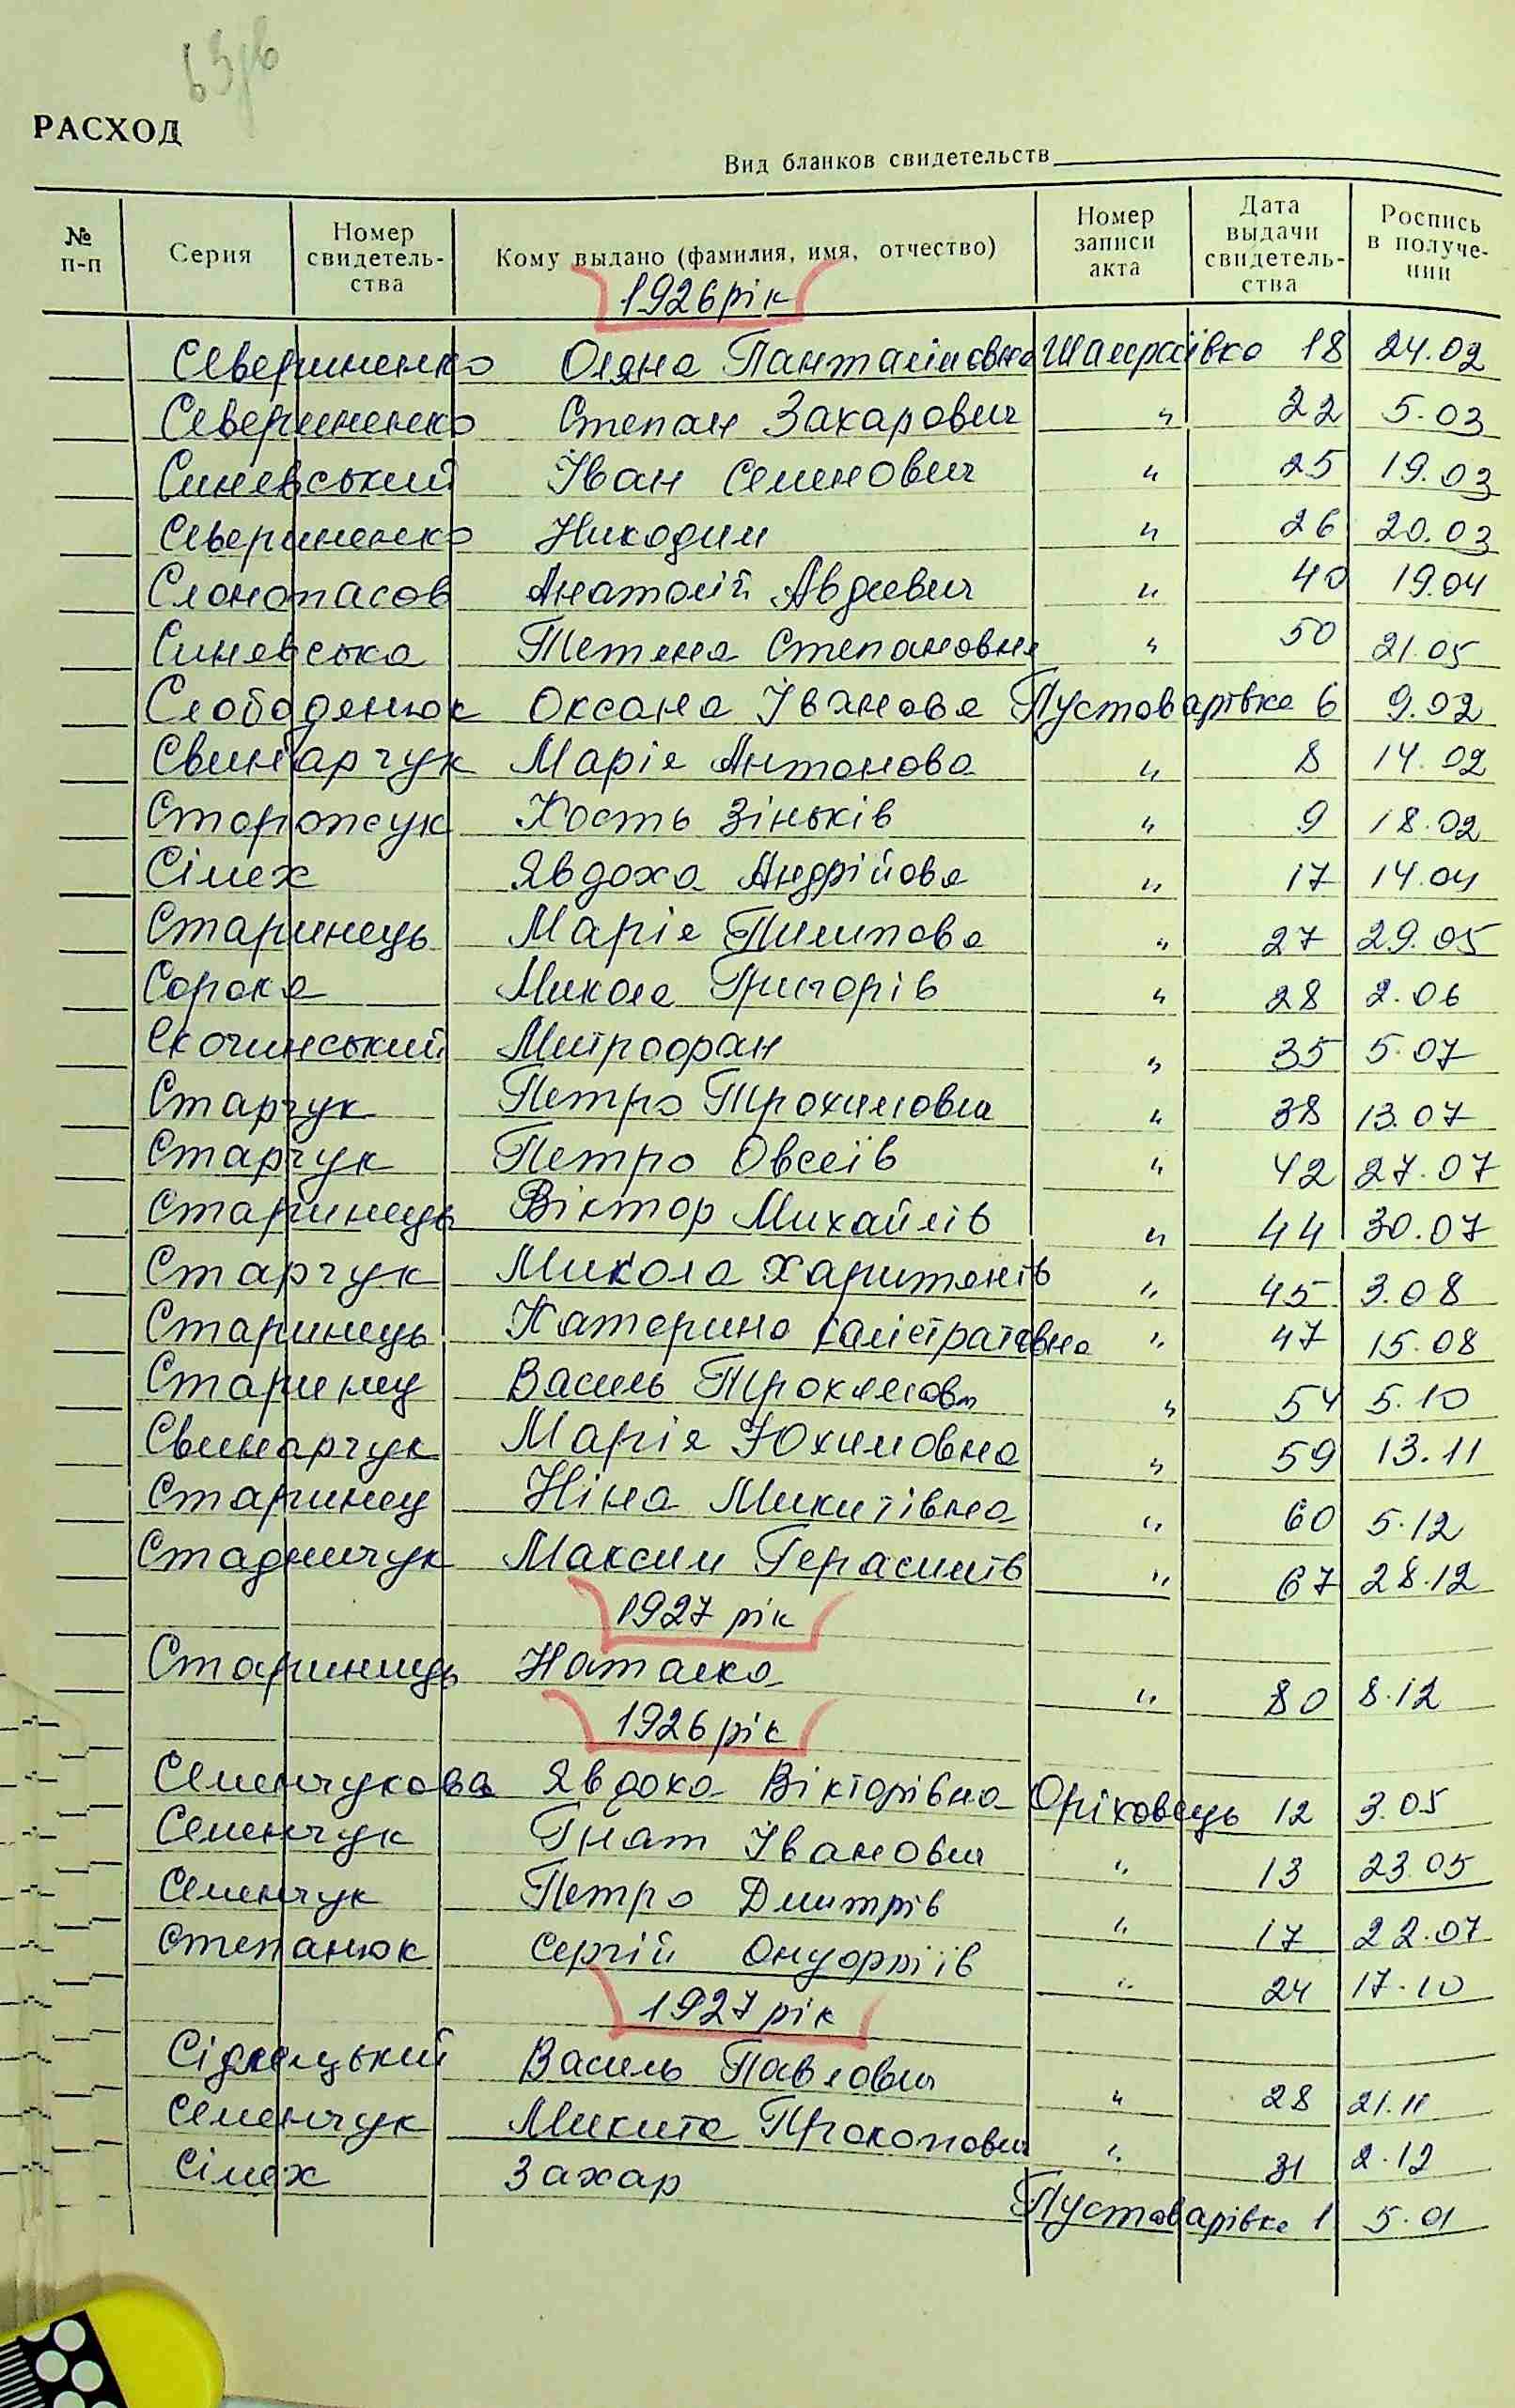 63зв
РАСХОД
Вид бланков свидетельств
№ п-п Серия Номер свидетель-ства Кому выдано (фамилия, имя, отчество) Номер записи акта Дата выдачи свидетель-ства Роспись в получе-нии
1926 рік
Севериненко Оляна Панталімовна Шамраївка 18 24.02
Севериненко Степан Захарович " 22 5.03
Синєвський Іван Семенович " 25 19.03
Севериненко Никодим " 26 20.03
Слонопасов Анатолій Авдеевич " 40 19.04
Синявська Тетяна Степановна " 50 21.05
Слободянюк Оксана Іванова Пустоварівка 6 9.02
Свинарчук Марія Антонова " 8 14.02
Сторожук Кость Зіньків " 9 18.02
Сімах Явдоха Андрійова " 17 14.04
Старинець Марія Пилипова " 27 29.05
Сорока Микола Григорів " 28 2.06
Скочинський Митрофан " 35 5.07
Старчук Петро Трохимович " 38 13.07
Старчук Петро Овсеїв " 42 27.07
Старинець Віктор Михайлів " 44 30.07
Старчук Микола Харитонів " 45 3.08
Старинець Катерина Калістратовна " 47 15.08
Старинец Василь " 54 5.10
Свинарчук Марія Юхимовна " 59 13.11
Старинец Ніна Микитівна " 60 5.12
Стадничук Максим Герасимів " 67 28.12
1927 рік
Стариниць Наталка " 80 8.12
1926 рік
Семенчукова Явдоха Вікторівна Оріховець 12 3.05
Семенчук Гнат Іванович " 13 23.05
Семенчук Петро Дмитрів " 17 22.07
Степанюк Сергій Онуфріїв " 24 17.10
1927 рік
Сідлецький Василь Павлович " 28 21.11
Семенчук Микита Прокопович " 31 2.12
Сімах Захар Пустоварівка 1 5.01